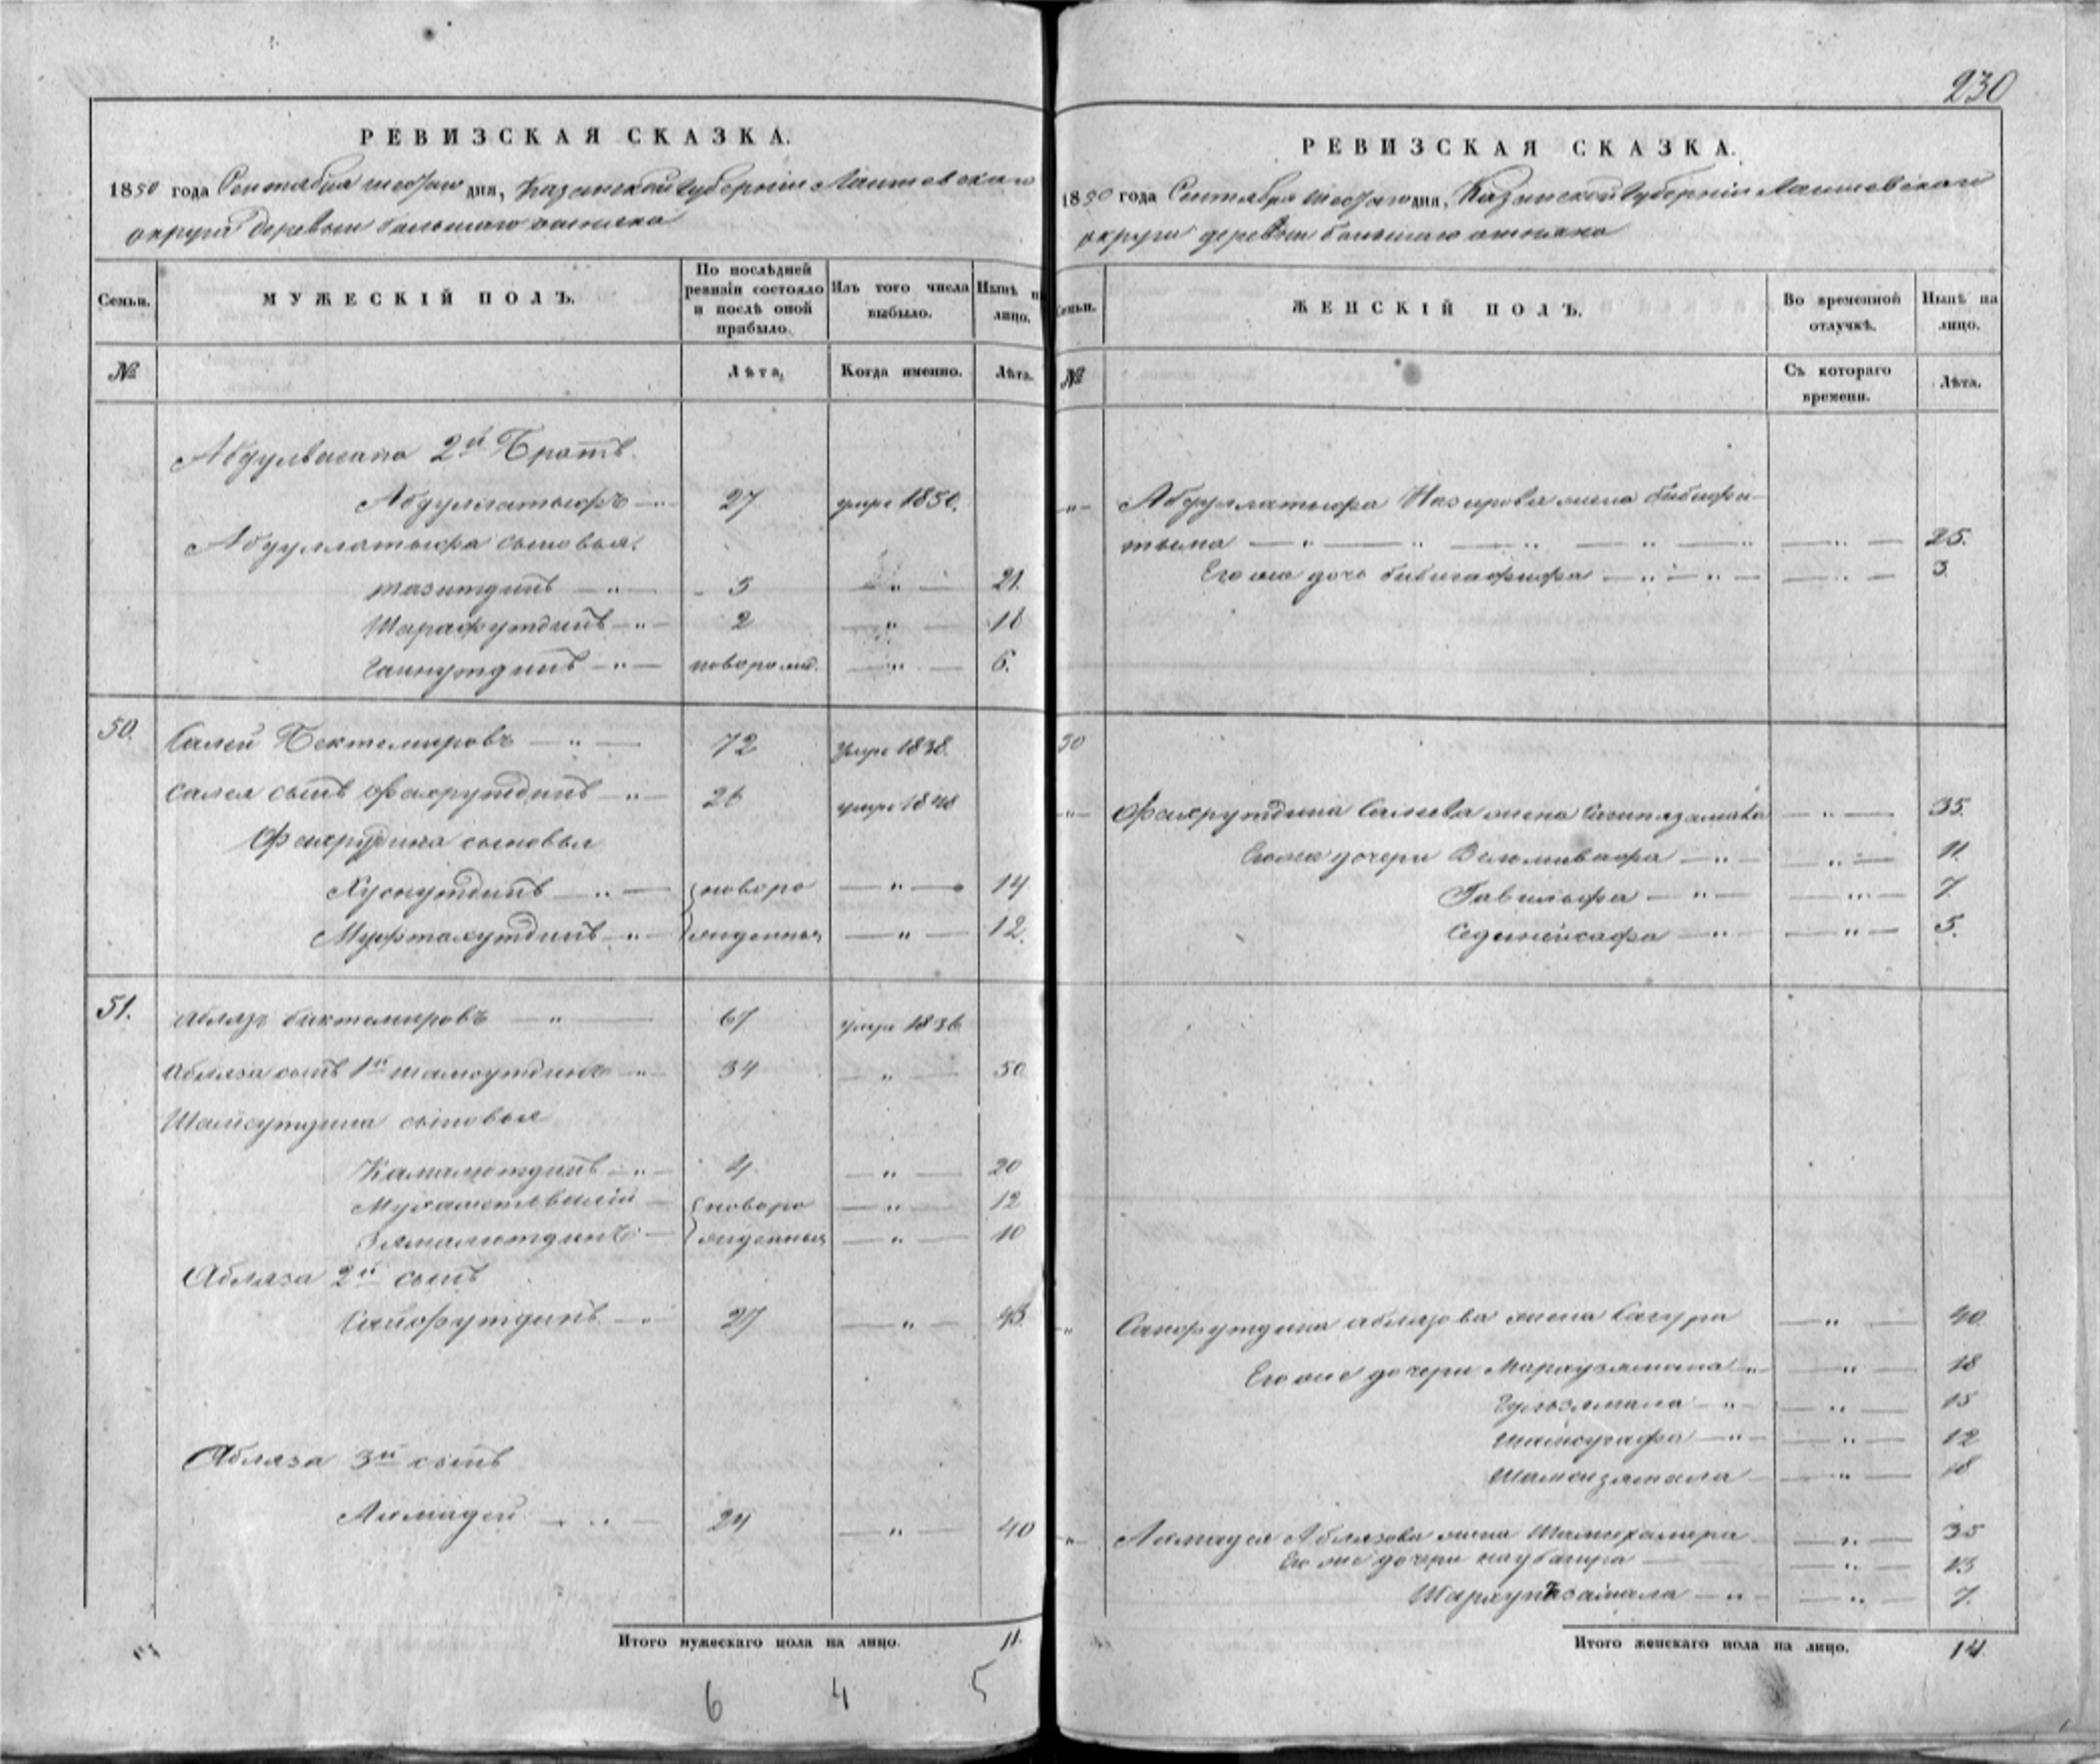 РЕВИЗСКАЯ СКАЗКА.
1850 года Сентября шестаго дня, Казанской Губерніи Лаишевскаго
округа деревни большаго
Семьи.
МУЖЕСКІЙ ПОЛЪ.
По послѣдней ревизіи состояло и послѣ оной прибыло.
Изъ того числа выбыло.
Нынѣ на лицо.
№
Лѣта.
Когда именно.
Лѣта.
2й Братъ.
Абдуллатыфъ — 27 умре 1850.
Абдуллатыфа сыновья:
— " — 3 — " — 21.
Шарафутдинъ — " — 2 — " — 18
— " — новорожд. — " — 6.
50. Салей Бектемировъ — " — 72 умре 1838.
Салея сынъ Фахрутдинъ — " — 26 умре 1848
Фахрудина сыновья
Хуснутдинъ — " — новоро — " — 14
Муфтахутдинъ — " — жденныя — " — 12.
51. Аблязъ бектемировъ — " — 67 умре 1836
Абляза сынъ 1й шамсутдинъ — " 34 — " — 50
Шамсутдина сыновья
Камалетдинъ — " — 4 — " — 20
Мухаметвалій — новоро — " — 12
Зямалетдинъ — жденныя — " — 10
Абляза 2й сынъ
Сайфутдинъ — " 27 — " — 43
Абляза 3й сынъ
Ахмадей — " — 24 — " — 40
Итого мужескаго пола на лицо. 11.
6 4 5
230
РЕВИЗСКАЯ СКАЗКА.
1850 года Сентября шестаго дня, Казанской Губерніи Лаишевскаго
округа деревни большаго
Семьи.
ЖЕНСКІЙ ПОЛЪ.
Во временной отлучкѣ.
Нынѣ на лицо.
№
Съ котораго времени.
Лѣта.
— " — Абдуллатыфа Назирова жена бибифа-
тыма — " — — " — 25.
Его же дочь бибигафифа — " — " — — " — 3.
50
— " — Фахрутдина Салеева жена — " — 35.
Его же дочери — " — — " — 11.
— " — — " — 7.
— " — — " — 5.
" Сайфутдина аблязова жена Сагура — " — 40.
Его же дочери — " — — " — 18
— " — — " — 15
— " — — " — 12
Шамсизямала — — " — 10
" Ахмадея Аблязова жена — " — 35
Его же дочери — — " — 13
— " — — " — 7.
Итого женскаго пола на лицо. 14.